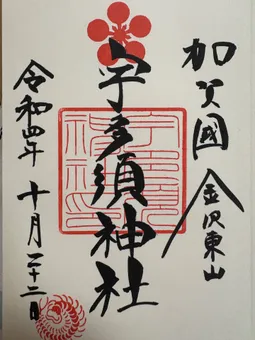 加賀國 金沢東山
宇多須神社
令和四年 十月二十二日